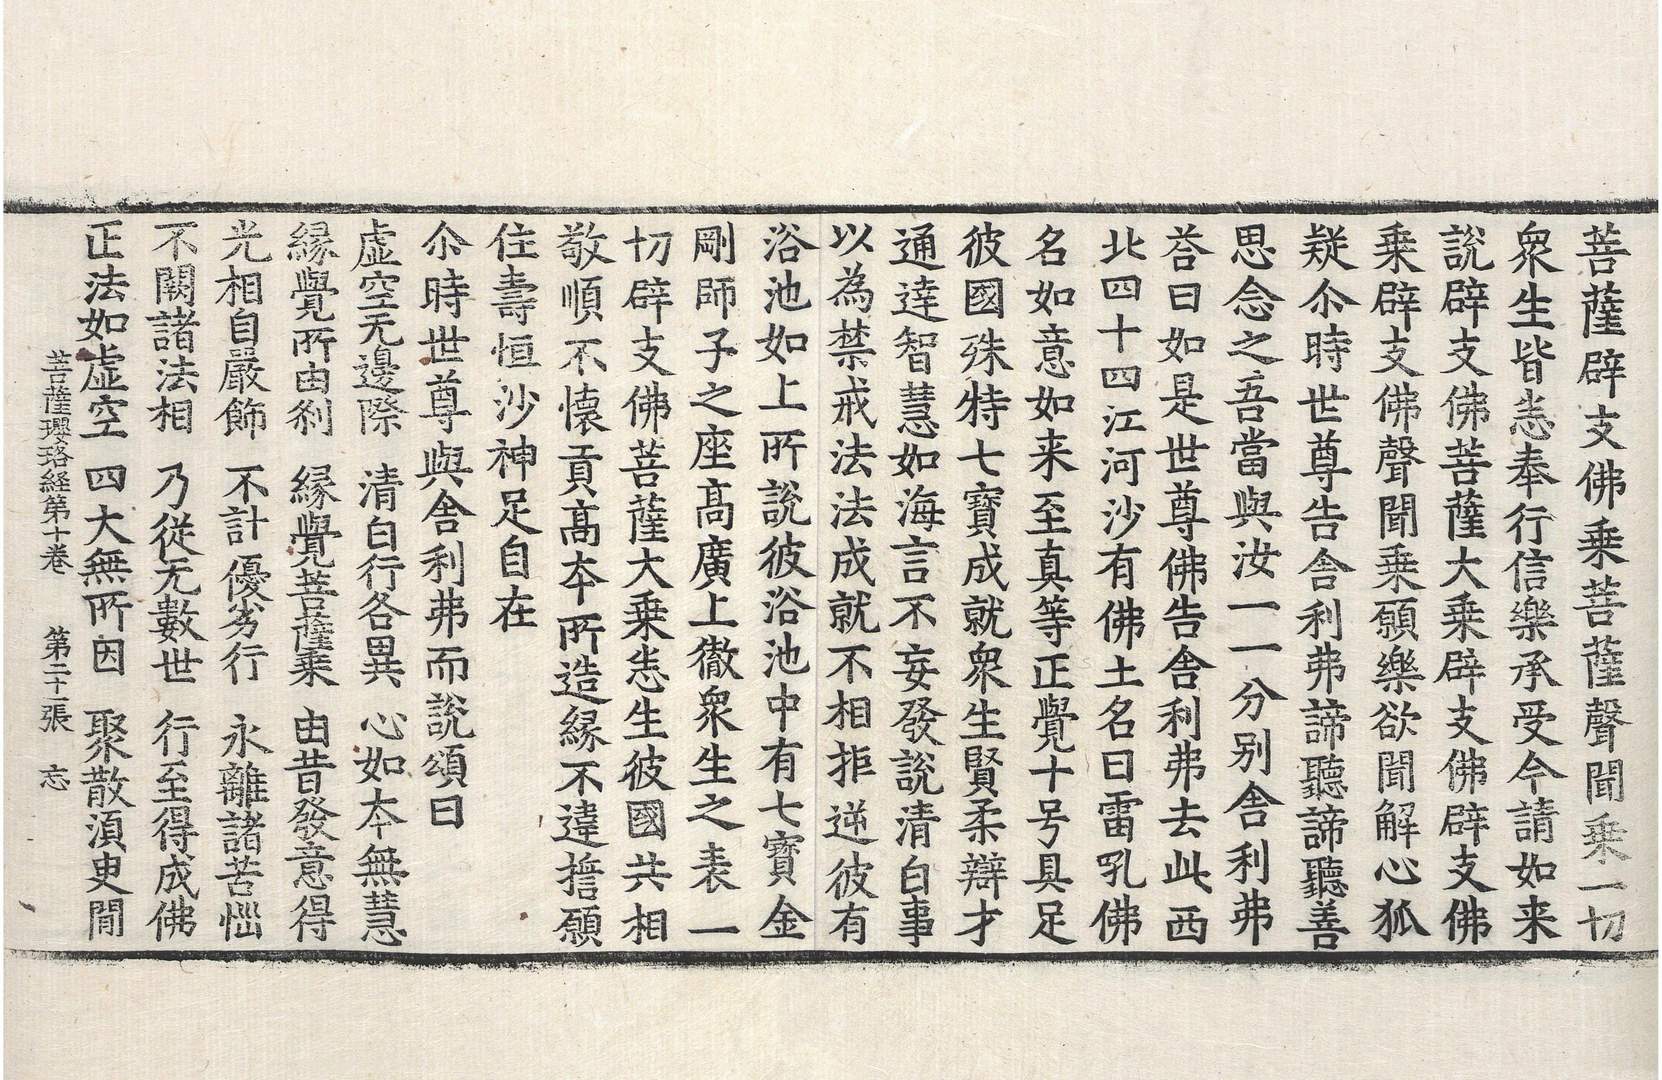 菩薩辟支佛乗菩薩聲聞乗一切
衆生皆悉奉行信樂承受今請如来
說辟支佛菩薩大乗辟支佛辟支佛
乗辟支佛聲聞乗願樂欲聞解心狐
疑尒時世尊告舎利弗諦聽諦聽善
思念之吾當與汝一一分别舎利弗
荅曰如是世尊佛告舎利弗去此西
北四十四江河沙有佛土名曰雷吼佛
名如意如来至真等正覺十号具足
彼國殊特七寶成就衆生賢柔辯才
通達智慧如海言不妄發說清白事
以為禁戒法法成就不相拒逆彼有
浴池如上所說彼浴池中有七寶金
剛師子之座髙廣上徹衆生之表一
切辟支佛菩薩大乗悉生彼國共相
敬順不懷貢髙夲所造縁不違擔願
住壽恒沙神足自在
尒時世尊與舎利弗而說頌曰
虛空无邊際 清白行各異 心如夲無慧
縁覺所由剎 縁覺菩薩乗 由昔發意得
光相自嚴飾 不計優劣行 永離諸苦惱
不闕諸法相 乃從无數世 行至得成佛
正法如虛空 四大無所因 聚散湏臾閒
菩薩瓔珞経第十卷 第二十張 忘